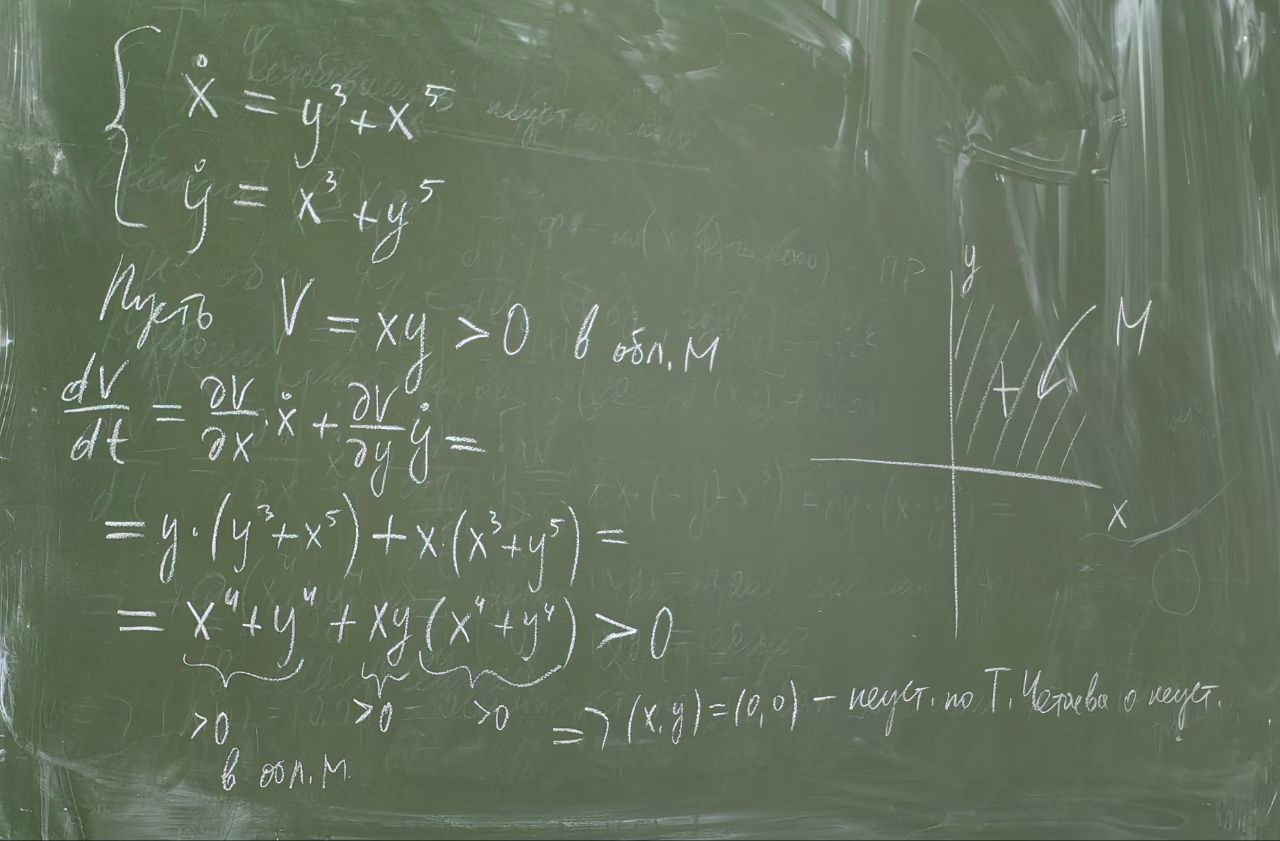 ẋ = y³ + x⁵
ẏ = x³ + y⁵
Пусть V = xy > 0 в обл. M
dV/dt = ∂V/∂x · ẋ + ∂V/∂y ẏ =
= y · (y³ + x⁵) + x · (x³ + y⁵) =
= x⁴ + y⁴ + xy (x⁴ + y⁴) > 0
>0 >0 >0
в обл. M
=> (x, y) = (0, 0) – неуст. по Т. Четаева о неуст.
y
M
+
x